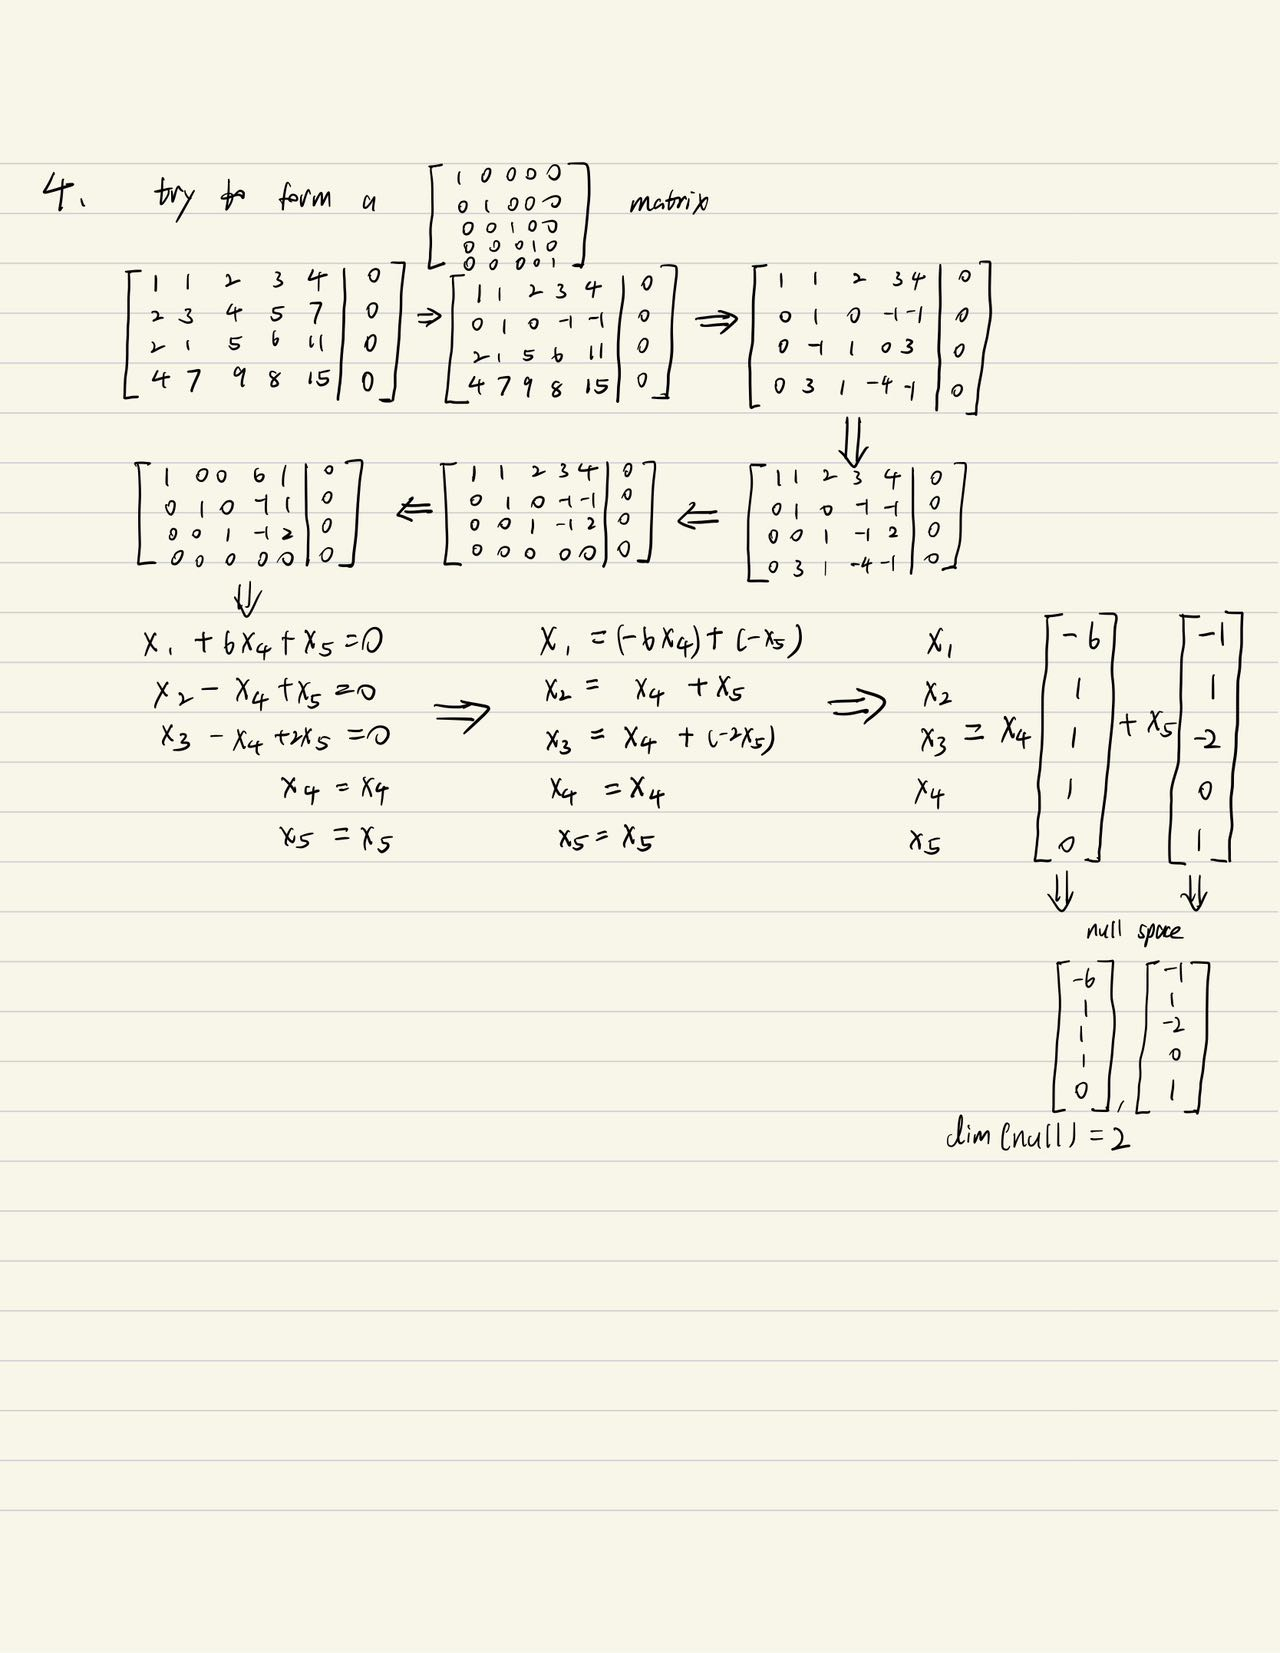 4. try to form a [1 0 0 0 0; 0 1 0 0 0; 0 0 1 0 0; 0 0 0 1 0; 0 0 0 0 1] matrix
[1 1 2 3 4 | 0; 2 3 4 5 7 | 0; 2 1 5 6 11 | 0; 4 7 9 8 15 | 0] ⇒ [1 1 2 3 4 | 0; 0 1 0 -1 -1 | 0; 2 1 5 6 11 | 0; 4 7 9 8 15 | 0] ⇒ [1 1 2 3 4 | 0; 0 1 0 -1 -1 | 0; 0 -1 1 0 3 | 0; 0 3 1 -4 -1 | 0]
⇓
[1 0 0 6 1 | 0; 0 1 0 -1 1 | 0; 0 0 1 -1 2 | 0; 0 0 0 0 0 | 0] ⇐ [1 1 2 3 4 | 0; 0 1 0 -1 -1 | 0; 0 0 1 -1 2 | 0; 0 0 0 0 0 | 0] ⇐ [1 1 2 3 4 | 0; 0 1 0 -1 -1 | 0; 0 0 1 -1 2 | 0; 0 3 1 -4 -1 | 0]
⇓
x₁ + 6x₄ + x₅ = 0 x₁ = (-6x₄) + (-x₅) x₁ [-6] [-1]
x₂ - x₄ + x₅ = 0 x₂ = x₄ + x₅ x₂ [1] [1]
x₃ - x₄ + 2x₅ = 0 ⇒ x₃ = x₄ + (-2x₅) ⇒ x₃ = x₄ [1] + x₅ [-2]
x₄ = x₄ x₄ = x₄ x₄ [1] [0]
x₅ = x₅ x₅ = x₅ x₅ [0] [1]
⇓ ⇓
null space
[-6; 1; 1; 1; 0], [-1; 1; -2; 0; 1]
dim(null) = 2